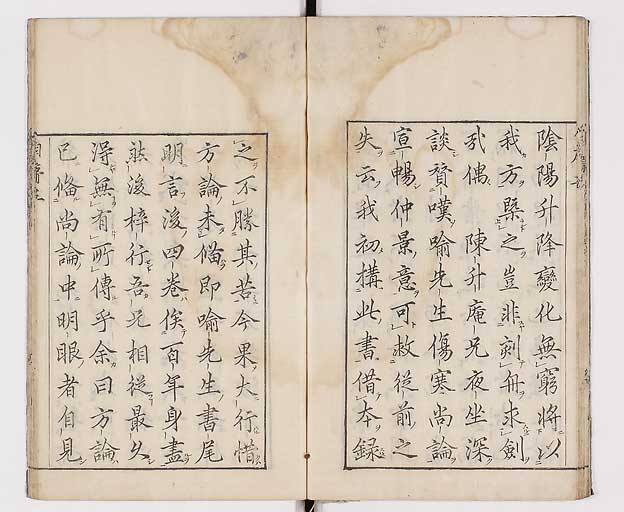 陰陽升降變化無窮將以
我方槩之豈非刻舟求劍
哉偶陳升庵兄夜坐深
談贊嘆喻先生傷寒尚論
宣暢仲景意可救從前之
失云我初搆此書借本録
之不勝其苦今果大行惜
方論未備即喻先生書尾
明言後四卷俟百年身盡
然後梓行吾兄相從最久
得無有所傳乎余曰方論
已備尚論中明眼者自見